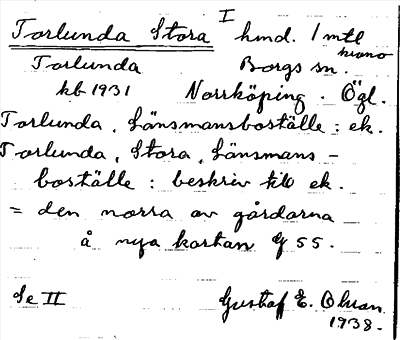 Torlunda Stora I hmd. 1 mtl
krono
Torlunda Borgs sn.
kb 1931 Norrköping. Ögl.
Torlunda, Länsmansboställe: ek.
Torlunda, Stora, Länsmans-
boställe: beskriv till ek.
= den norra av gårdarna
å nya kartan G 55.
Se II Gustaf E. Ohman
1938.